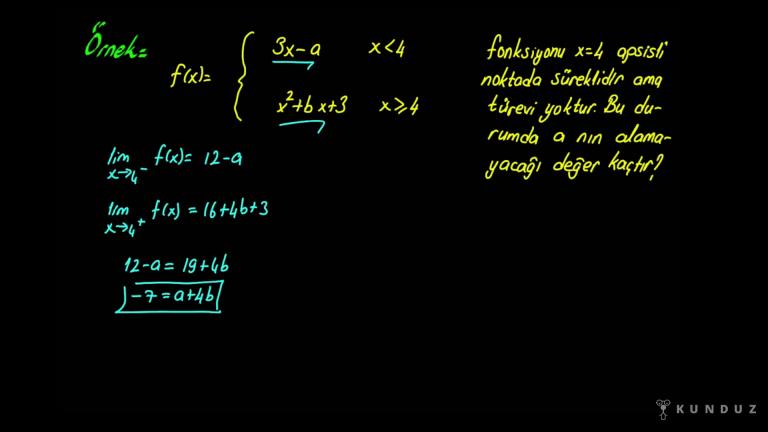 Örnek=
f(x)= { 3x-a x<4
x²+bx+3 x≥4
fonksiyonu x=4 apsisli
noktada süreklidir ama
türevi yoktur. Bu du-
rumda a nın alama-
yacağı değer kaçtır?
lim x→4⁻ f(x)= 12-a
lim x→4⁺ f(x) = 16+4b+3
12-a = 19+4b
-7 = a+4b
KUNDUZ